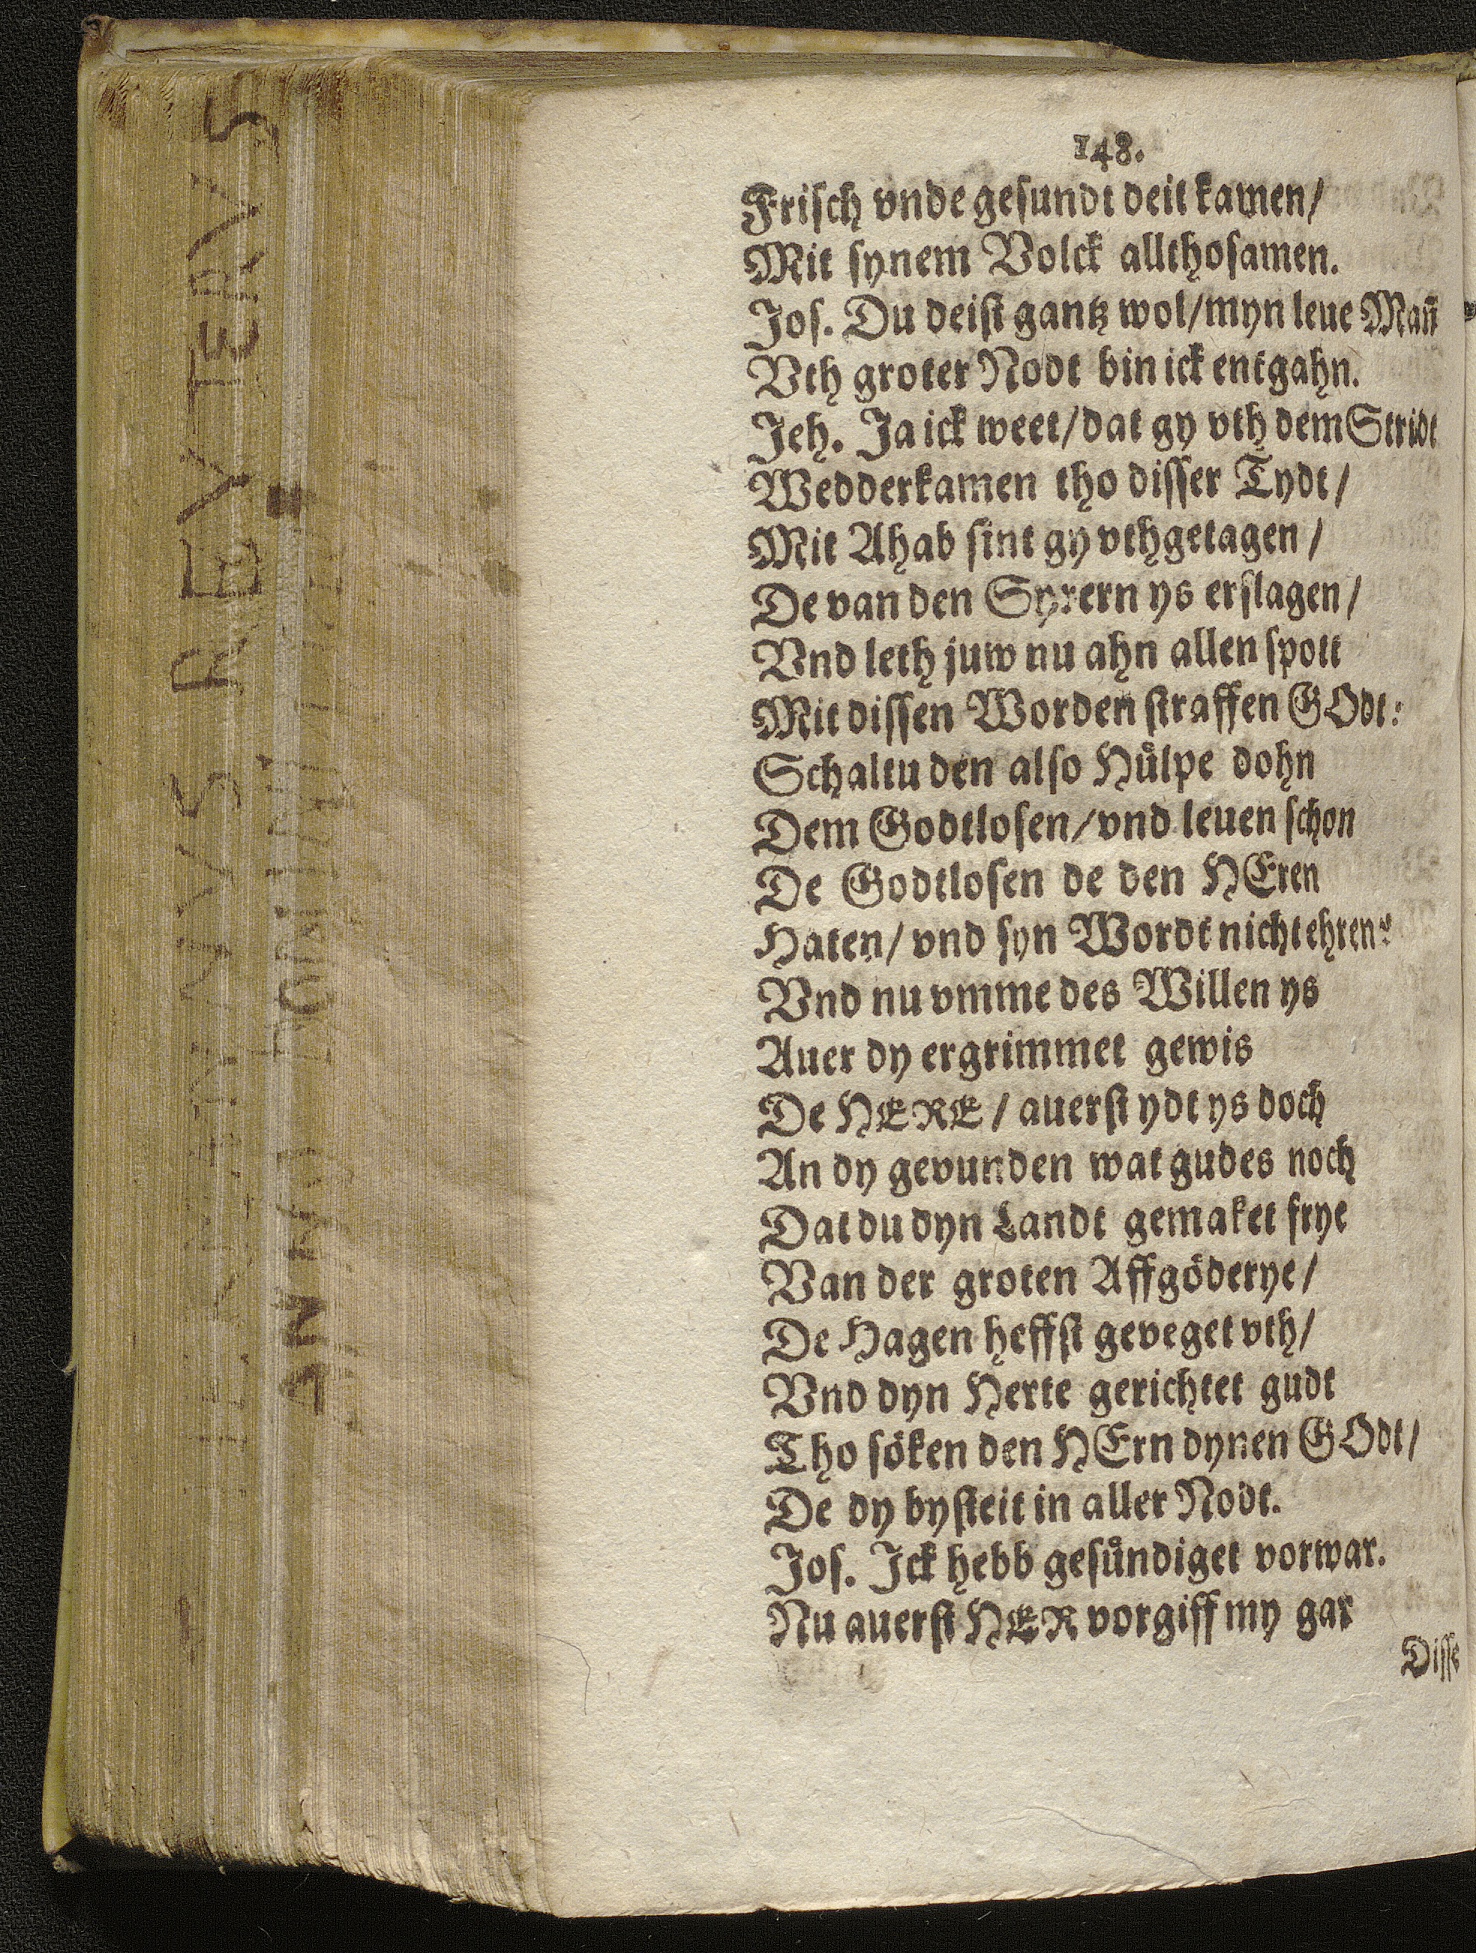 148.
Frisch vnde gesundt deit kamen/
Mit synem Volck allthosamen.
Jos. Du deist gantz wol/myn leue Man̄
Vth groter Nodt bin ick entgahn.
Jeh. Ja ick weet/dat gy vth dem Stridt
Wedderkamen tho disser Tydt/
Mit Ahab sint gy vthgetagen/
De van den Syrern ys erslagen/
Vnd leth juw nu ahn allen spott
Mit dissen Worden straffen GOdt:
Schaltu den also Huͤlpe dohn
Dem Godtlosen/vnd leuen schon
De Godtlosen de den HEren
Haten/vnd syn Wordt nicht ehren?
Vnd nu vmme des Willen ys
Auer dy ergrimmet gewis
De HERE/auerst ydt ys doch
An dy gevunden wat gudes noch
Dat du dyn Landt gemaket frye
Van der groten Affgöderye/
De Hagen heffst geveget vth/
Vnd dyn Herte gerichtet gudt
Tho söken den HErn dynen GOdt/
De dy bysteit in aller Nodt.
Jos. Ick hebb gesuͤndiget vorwar.
Nu auerst HER vorgiff my gar
Disse
REVTERVS